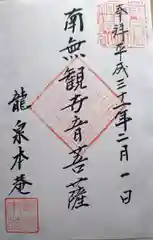 奉拝平成三十一年二月一日
南無観世音菩薩
龍泉本庵